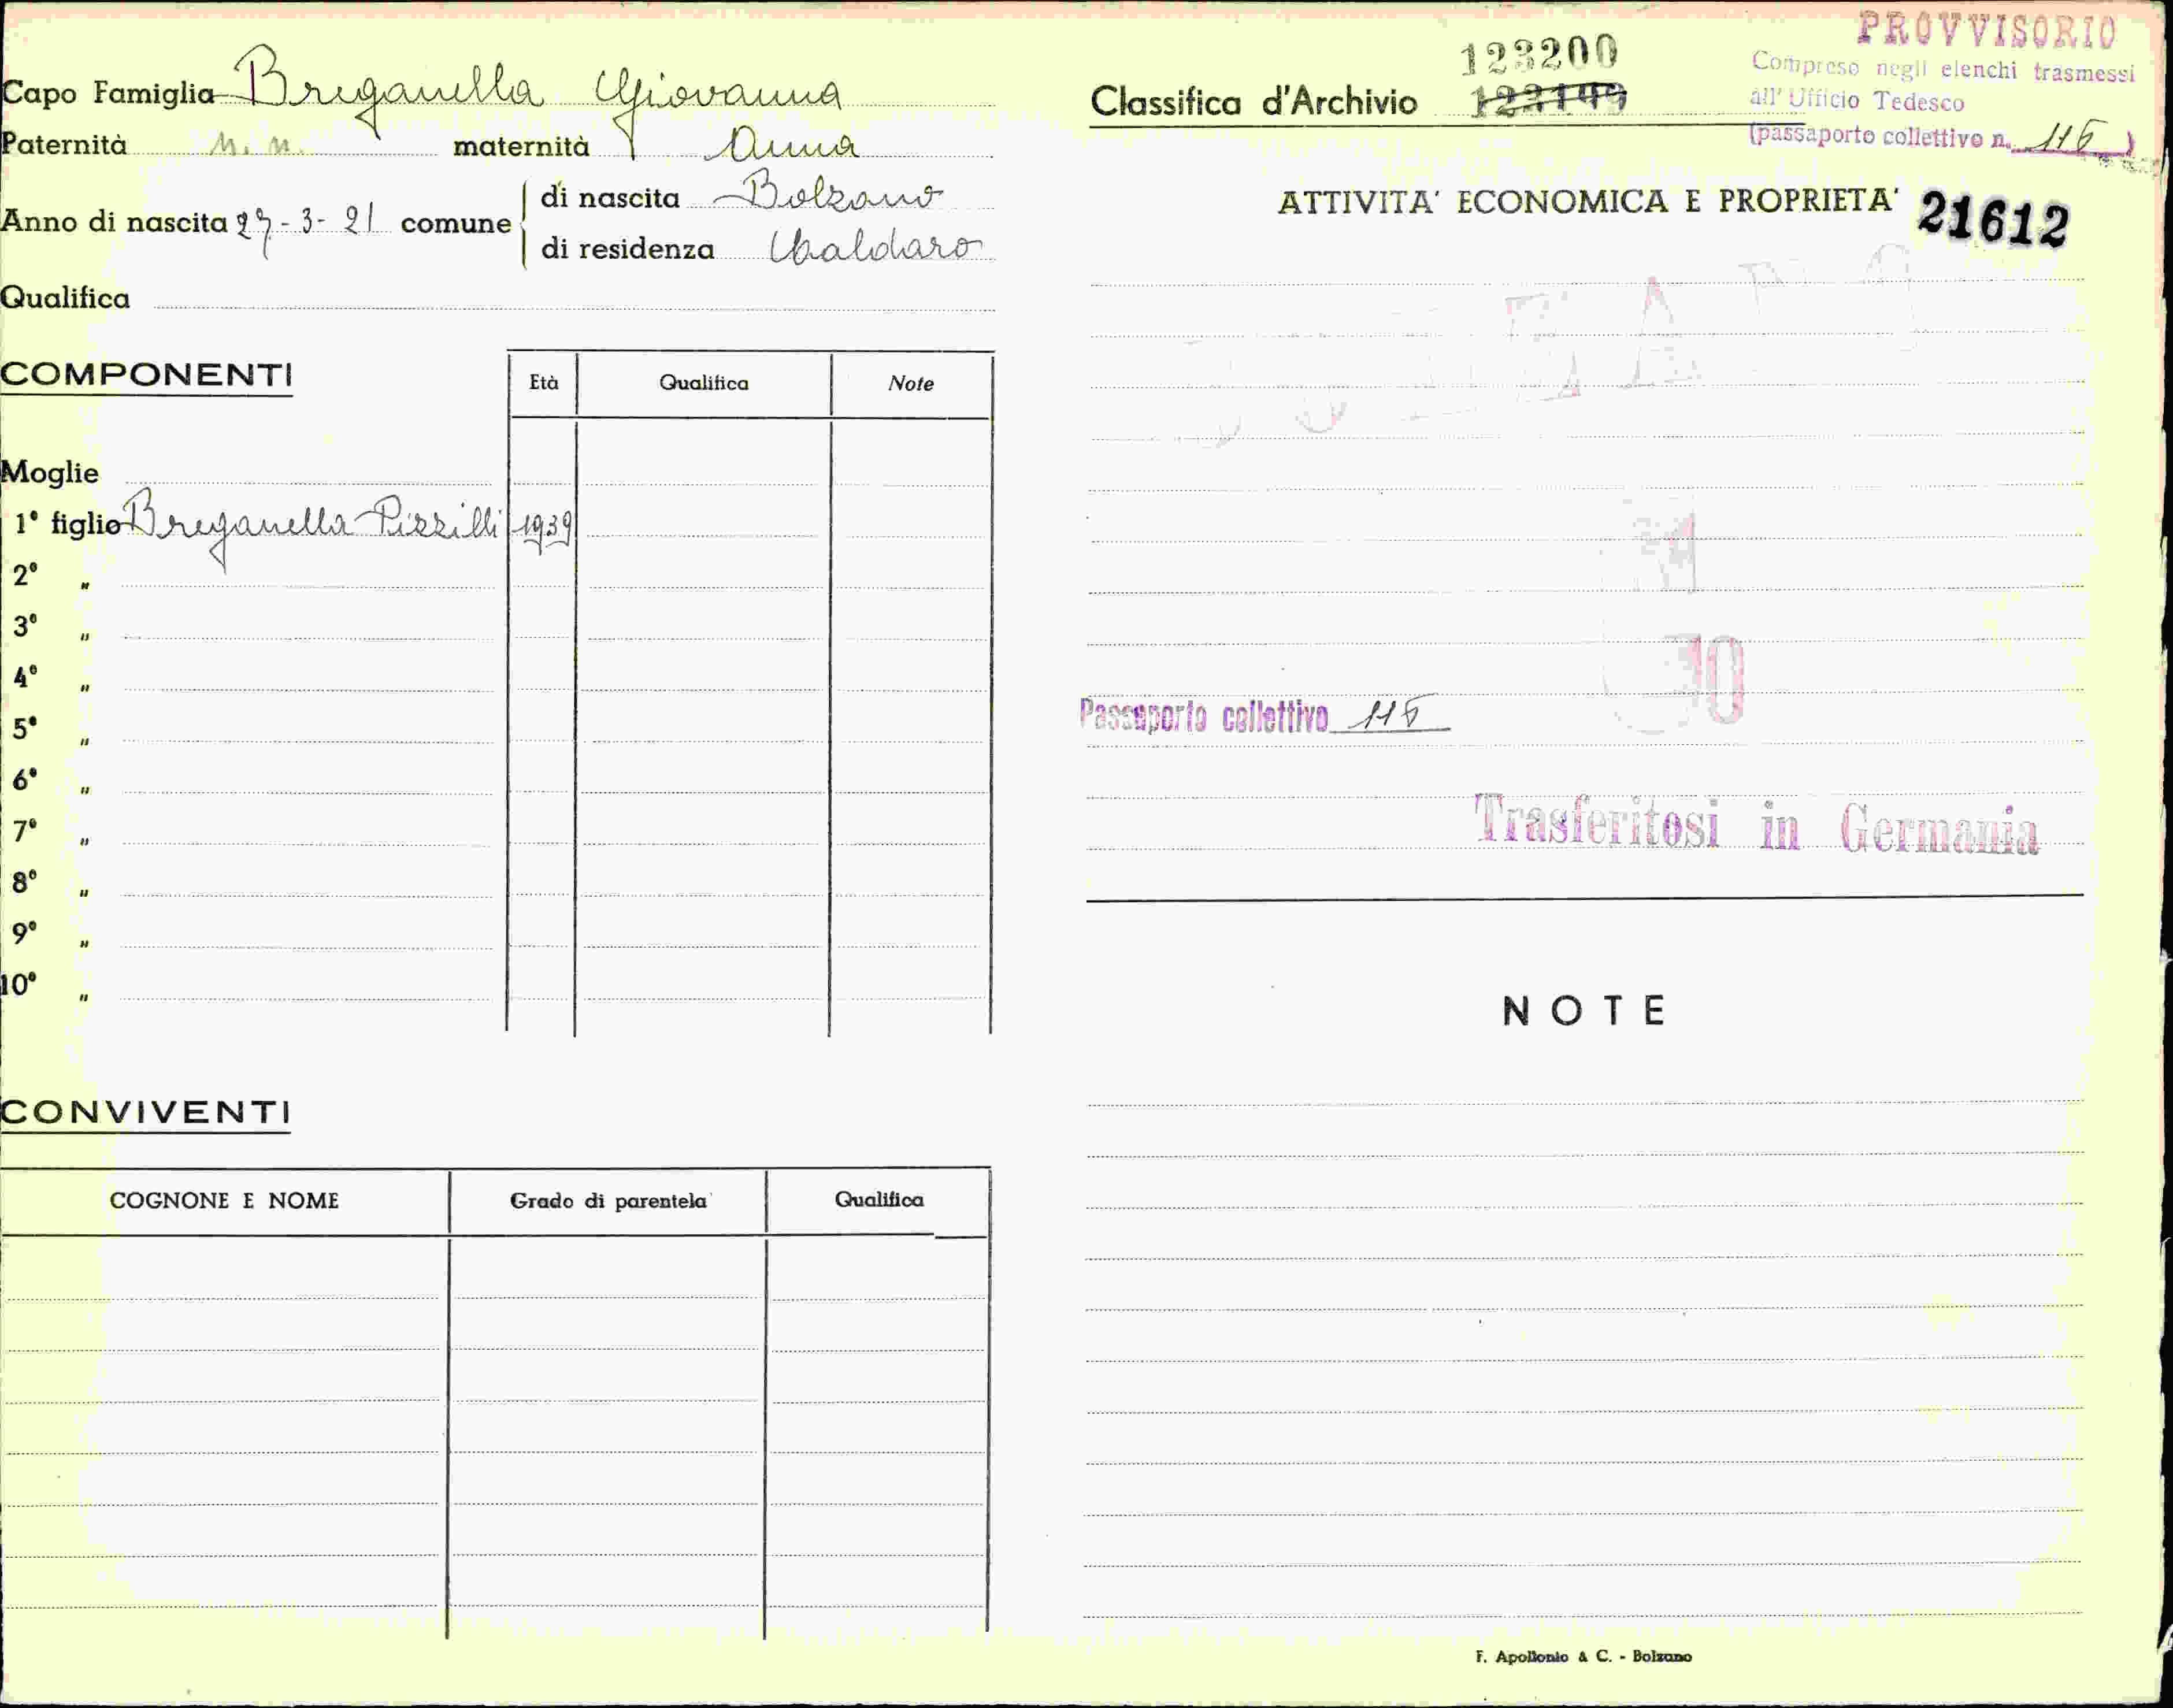 Capo Famiglia Breganella Giovanna
Paternità N. N. maternità Anna
Anno di nascita 27-3-21 comune
di nascita Bolzano
di residenza Caldaro
Qualifica
COMPONENTI
Età Qualifica Note
Moglie
1° figlio Breganella Pizzilli 1939
2° "
3° "
4° "
5° "
6° "
7° "
8° "
9° "
10° "
CONVIVENTI
COGNONE E NOME Grado di parentela Qualifica
PROVVISORIO
Compreso negli elenchi trasmessi
all' Ufficio Tedesco
(passaporto collettivo n. 116)
123200
Classifica d'Archivio
ATTIVITA' ECONOMICA E PROPRIETA' 21612
Passaporto collettivo 116
Trasferitosi in Germania
NOTE
F. Apollonio & C. - Bolzano